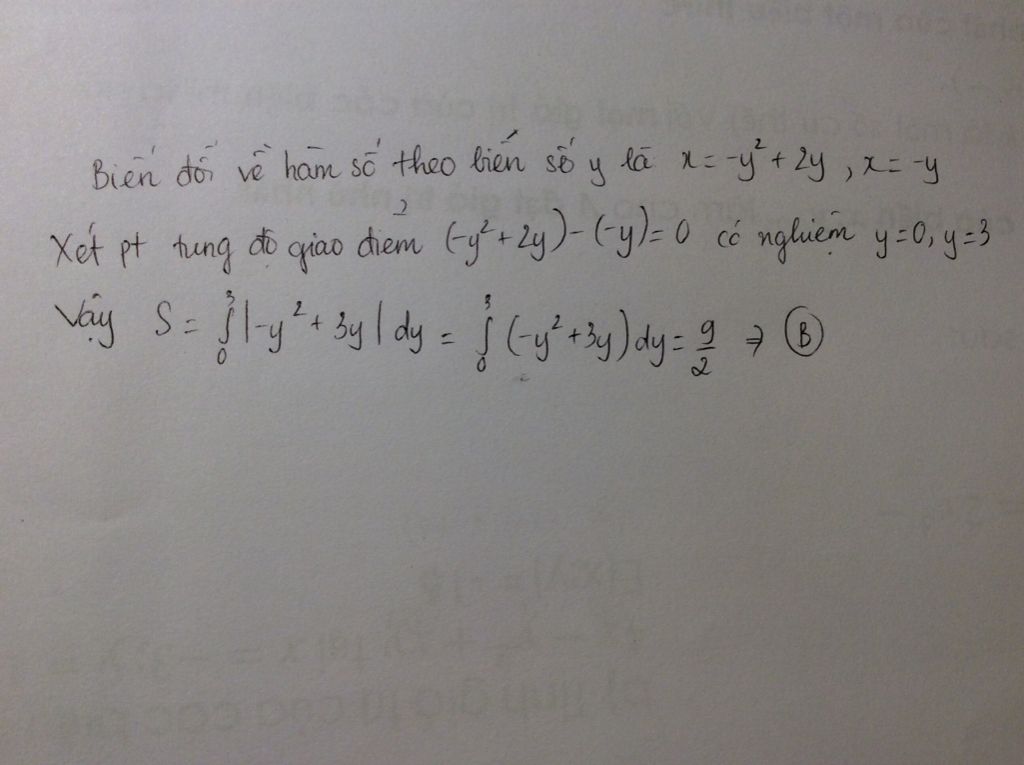 Biến đổi về hàm số theo biến số y là x = -y² + 2y , x = -y
Xét pt tung độ giao điểm (-y² + 2y) - (-y) = 0 có nghiệm y=0, y=3
Vậy S = ∫₀³ |-y² + 3y| dy = ∫₀³ (-y² + 3y) dy = 9/2 ⇒ Ⓑ